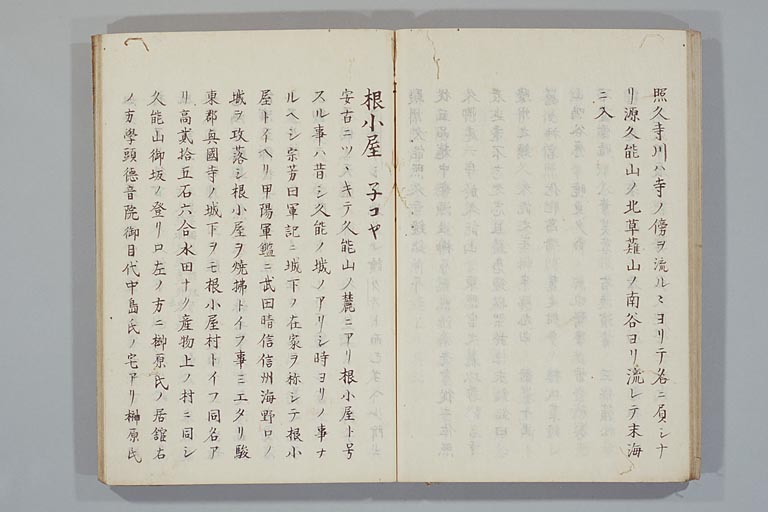 照久寺川ハ寺ノ傍ヲ流ルヽヨリテ名ニ負シナ
リ源久能山ノ北草薙山ノ南谷ヨリ流レテ末海
ニ入
根小屋 子コヤ
安古ニツヽキテ久能山ノ麓ニアリ根小屋ト号
スル事ハ昔シ久能ノ城ノアリシ時ヨリノ事ナ
ルヘシ宗芳曰軍記ニ城下ノ在家ヲ称シテ根小
屋トイヘリ甲陽軍鑑ニ武田晴信信州海野口ノ
城ヲ攻落シ根小屋ヲ焼拂トイフ事ミエタリ駿
東郡真國寺ノ城下ヲモ根小屋村トイフ同名ア
リ高貳拾五石六合水田ナク産物上ノ村ニ同シ
久能山御坂ノ登リ口左ノ方ニ榊原氏ノ居舘右
ノ方学頭徳音院御目代中島氏ノ宅アリ榊原氏